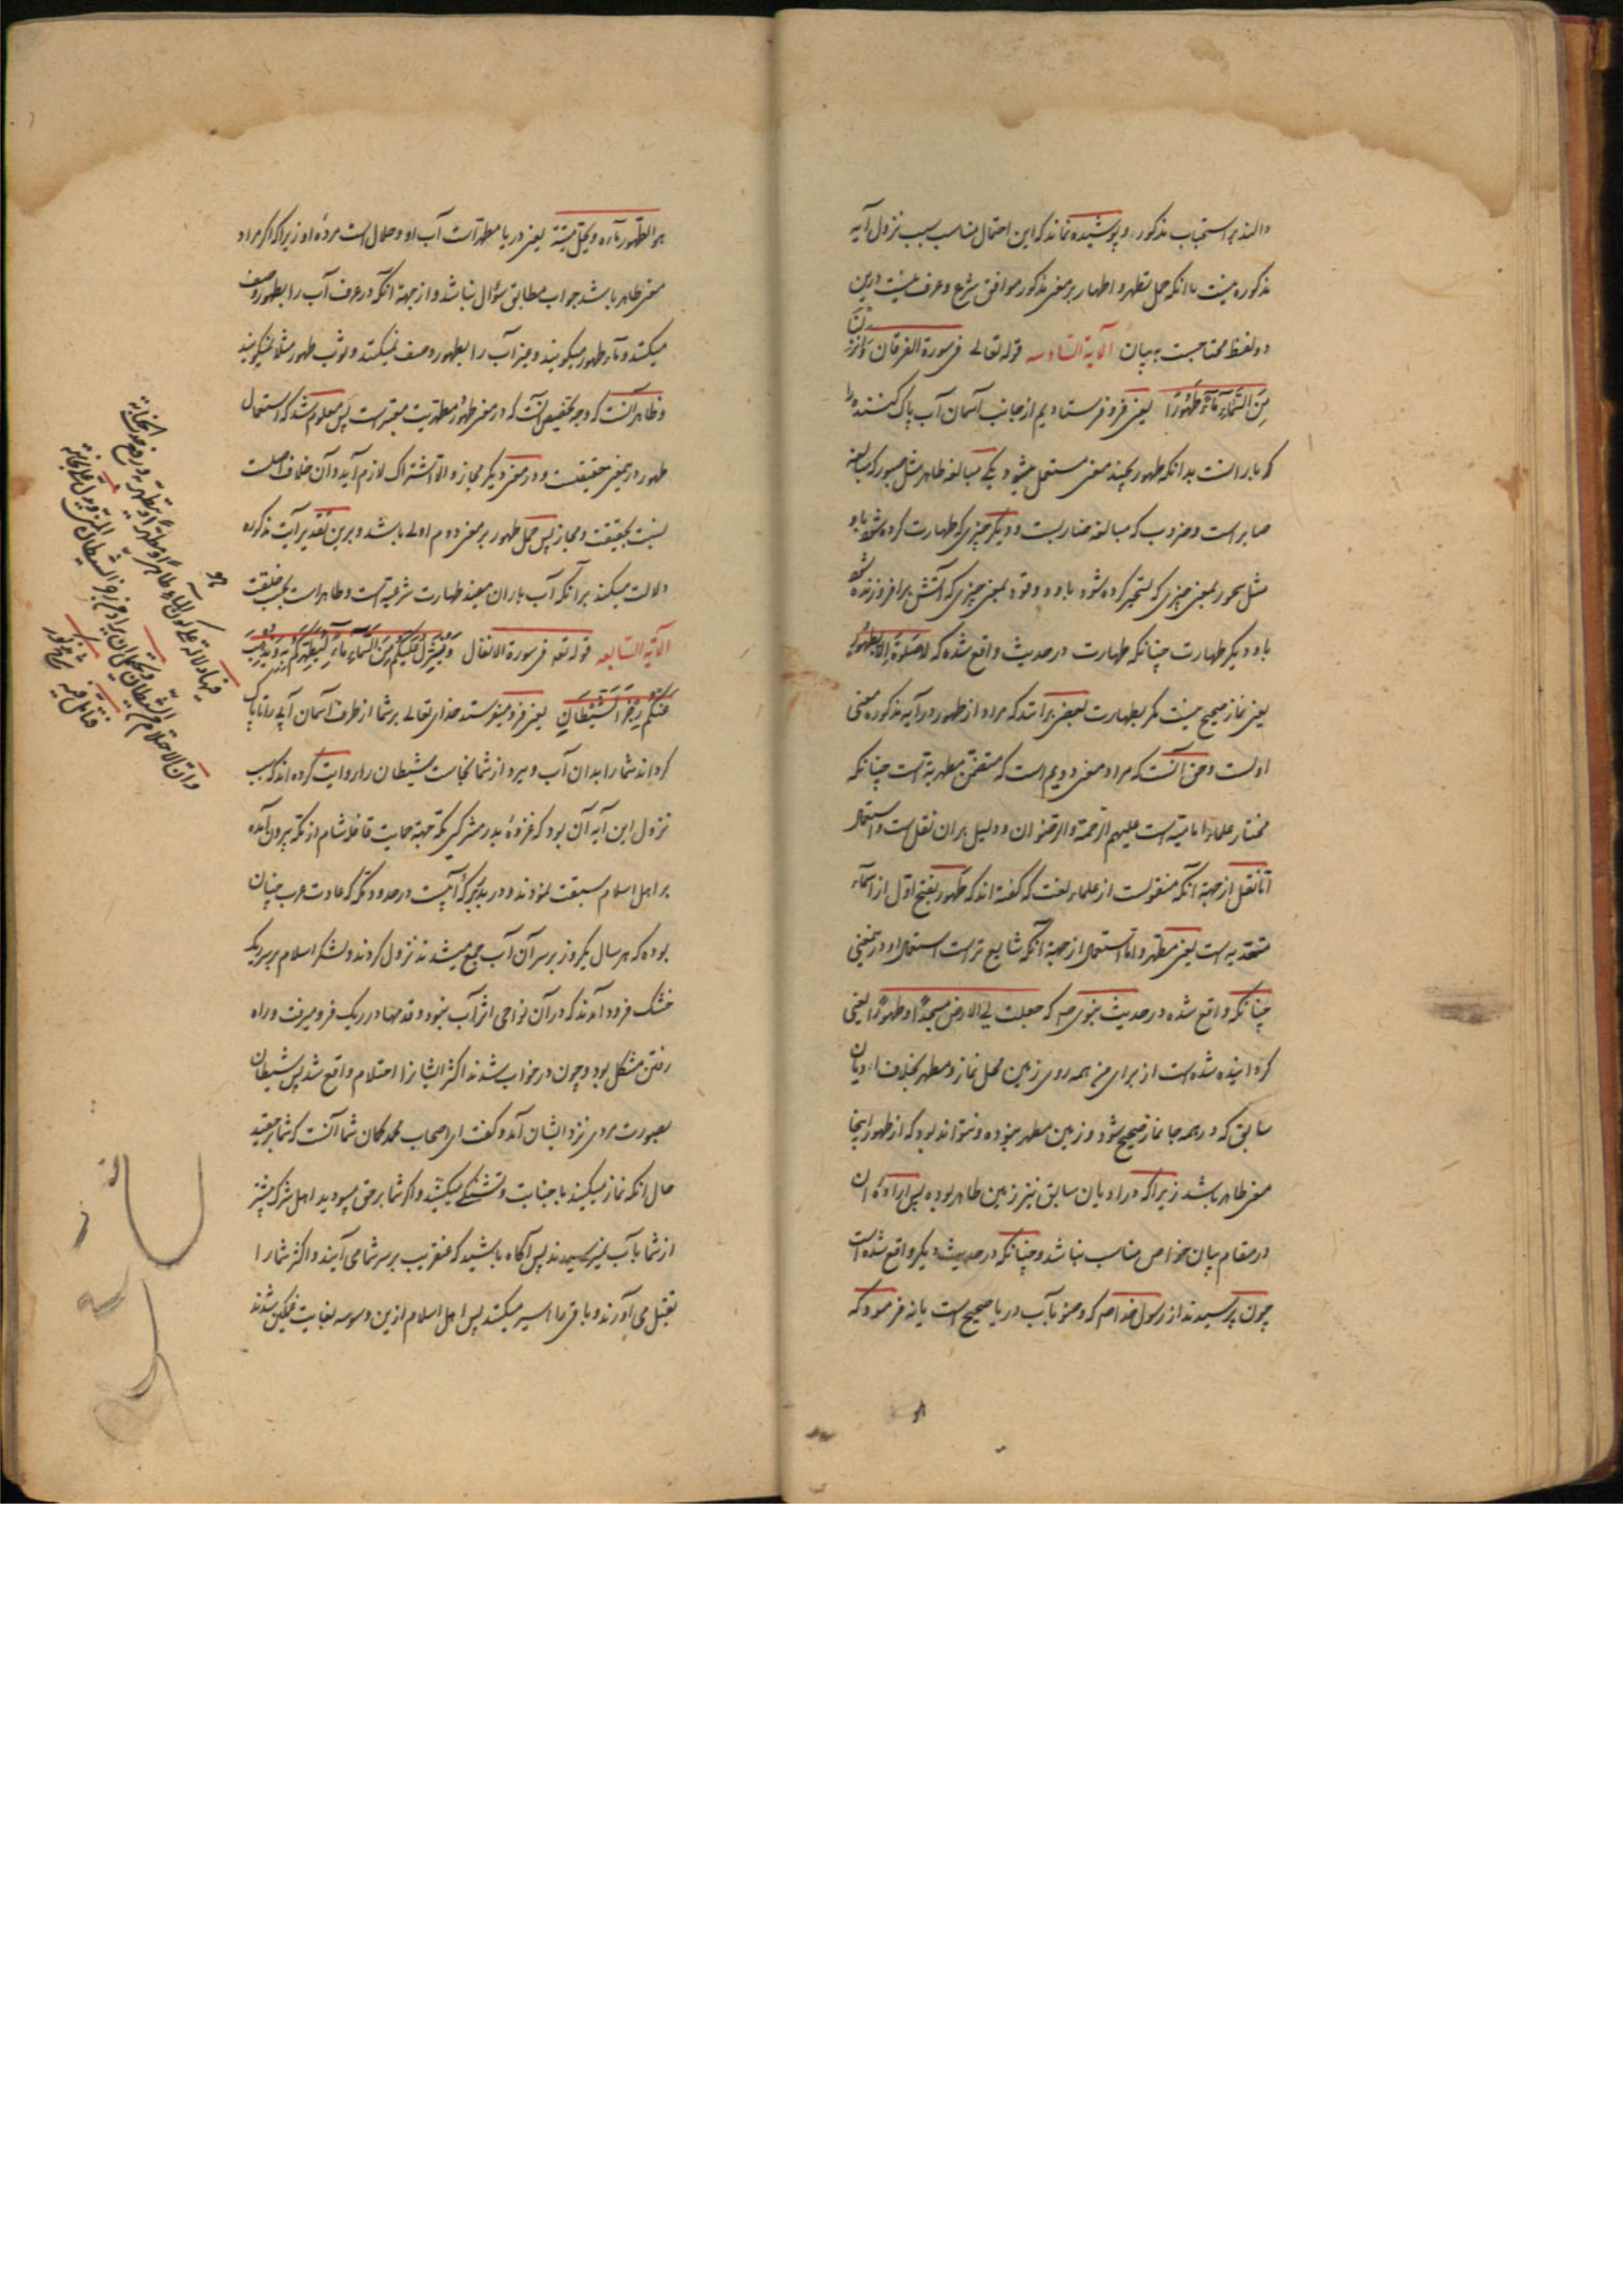 دالند بر استحباب مذکور و پوشیده نماند که این احتمال مناسب سبب نزول آیه
مذکوره نیست با آنکه حمل تطهر و اطهار بر معنی مذکور موافق شرع و عرف نیست و این
دو لفظ محتاجست به بیان الآیة السادسه قوله تعالی فی سورة الفرقان وَاَنْزَلْنَا
مِنَ السَّمَاءِ مَاءً طَهُورًا یعنی فرو فرستادیم از جانب آسمان آب پاک کننده را
که بارانست بدانکه طهور بچند معنی مستعمل میشود یکی مبالغه طاهر مثل صبور که مبالغه
صابر است و ضروب که مبالغه ضاربست و دیگر چیزی که طهارت کرده شود باو
مثل سحور بمعنی چیزی که تسحیر کرده شود باو و وقود بمعنی چیزی که آتش برافروزنده شود
باو و دیگر طهارت چنانکه طهارت در حدیث واقع شده که لا صلوة الا بطهور
یعنی نماز صحیح نیست مگر بطهارت بعضی برآنند که مراد از طهور در آیه مذکوره معنی
اولست و حق آنست که مراد معنی دویم است که متضمن مطهریة است چنانکه
مختار علماء امامیه است علیهم الرحمة والرضوان و دلیل بر ان نقل است و استعمال
اما نقل از جهة آنکه منقولست از علماء لغت که گفته اند که طهور بفتح اول از اسماء
متعدیه است یعنی مطهر و اما استعمال از جهة آنکه شایع تر است استعمال او در این معنی
چنانکه واقع شده در حدیث نبوی ص که جعلت لی الارض مسجدًا و طهورًا یعنی
گردانیده شده است از برای من همه روی زمین محل نماز و مطهر بخلاف ادیان
سابق که در همه جا نماز صحیح نبود و زمین مطهر نبوده و نتواند بود که از طهور اینجا
معنی طاهر باشد زیرا که در ادیان سابق نیز زمین طاهر بوده پس اراده آن
در مقام بیان خواص مناسب نباشد و چنانکه در حدیث دیگر واقع شده است
چون پرسیدند از رسول خدا ص که وضو بآب دریا صحیح است یا نه فرمود که
هو الطهور ماءه و یحل میتته یعنی دریا مطهر است آب او و حلال است مرده او زیرا که اگر مراد
معنی طاهر باشد جواب مطابق سؤال نباشد و از جهة آنکه در عرف آب را بطهور وصف
میکنند و ماء طهور میگویند و غیر آب را بطهور وصف نمیکنند و ثوب طهور مثلا نمیگویند
و ظاهر آنست که وجه تخصیص آنست که در معنی طهور مطهریت معتبر است پس معلوم شد که استعمال
طهور در این معنی حقیقتست و در معنی دیگر مجاز و الا اشتراک لازم آید و آن خلاف اصلست
نسبت بحقیقت و مجاز پس حمل طهور بر معنی دوم اولی باشد و برین تقدیر آیت مذکوره
دلالت میکند بر آنکه آب باران مفید طهارت شرعیه است و طاهر است بحسب خلقت
الآیة السابعه قوله تعه فی سورة الانفال وَیُنَزِّلُ عَلَیْکُمْ مِنَ السَّمَاءِ مَاءً لِیُطَهِّرَکُمْ بِهِ وَیُذْهِبَ
عَنْکُمْ رِجْزَ الشَّیْطَانِ یعنی فرو میفرستد خدای تعالی بر شما از طرف آسمان آبی را تا پاک
گرداند شما را بدان آب و ببرد از شما نجاست شیطان را روایت کرده اند که سبب
نزول این آیه آن بود که غزوه بدر مشرکین مکه جهة حمایت قافله شام از مکه بیرون آمده
بر اهل اسلام سبقت نمودند و در بدر که آبیست در حدود مکه که عادت عرب چنان
بوده که هر سال یکروز بر سر آن آب جمع میشدند نزول کردند و لشکر اسلام بر سر ریک
خشک فرود آمدند که در آن نواحی اثر آب نبود و قدمها در ریک فرو میرفت و راه
رفتن مشکل بود و چون در خواب شدند اکثر ایشانرا احتلام واقع شد پس شیطان
بصورت مردی نزد ایشان آمد و گفت ای اصحاب محمد گمان شما آنست که شما بر حقید
حال آنکه نماز میکنید با جنابت و تشنگی میکشید و اگر شما بر حق میبودید اهل شرک پیشتر
از شما بآب نمیرسیدند پس آگاه باشید که عنقریب بر سر شما می آیند و اکثر شما را
بقتل می آورند و باقی را اسیر میکنند پس اهل اسلام ازین وسوسه بغایت غمگین شدند